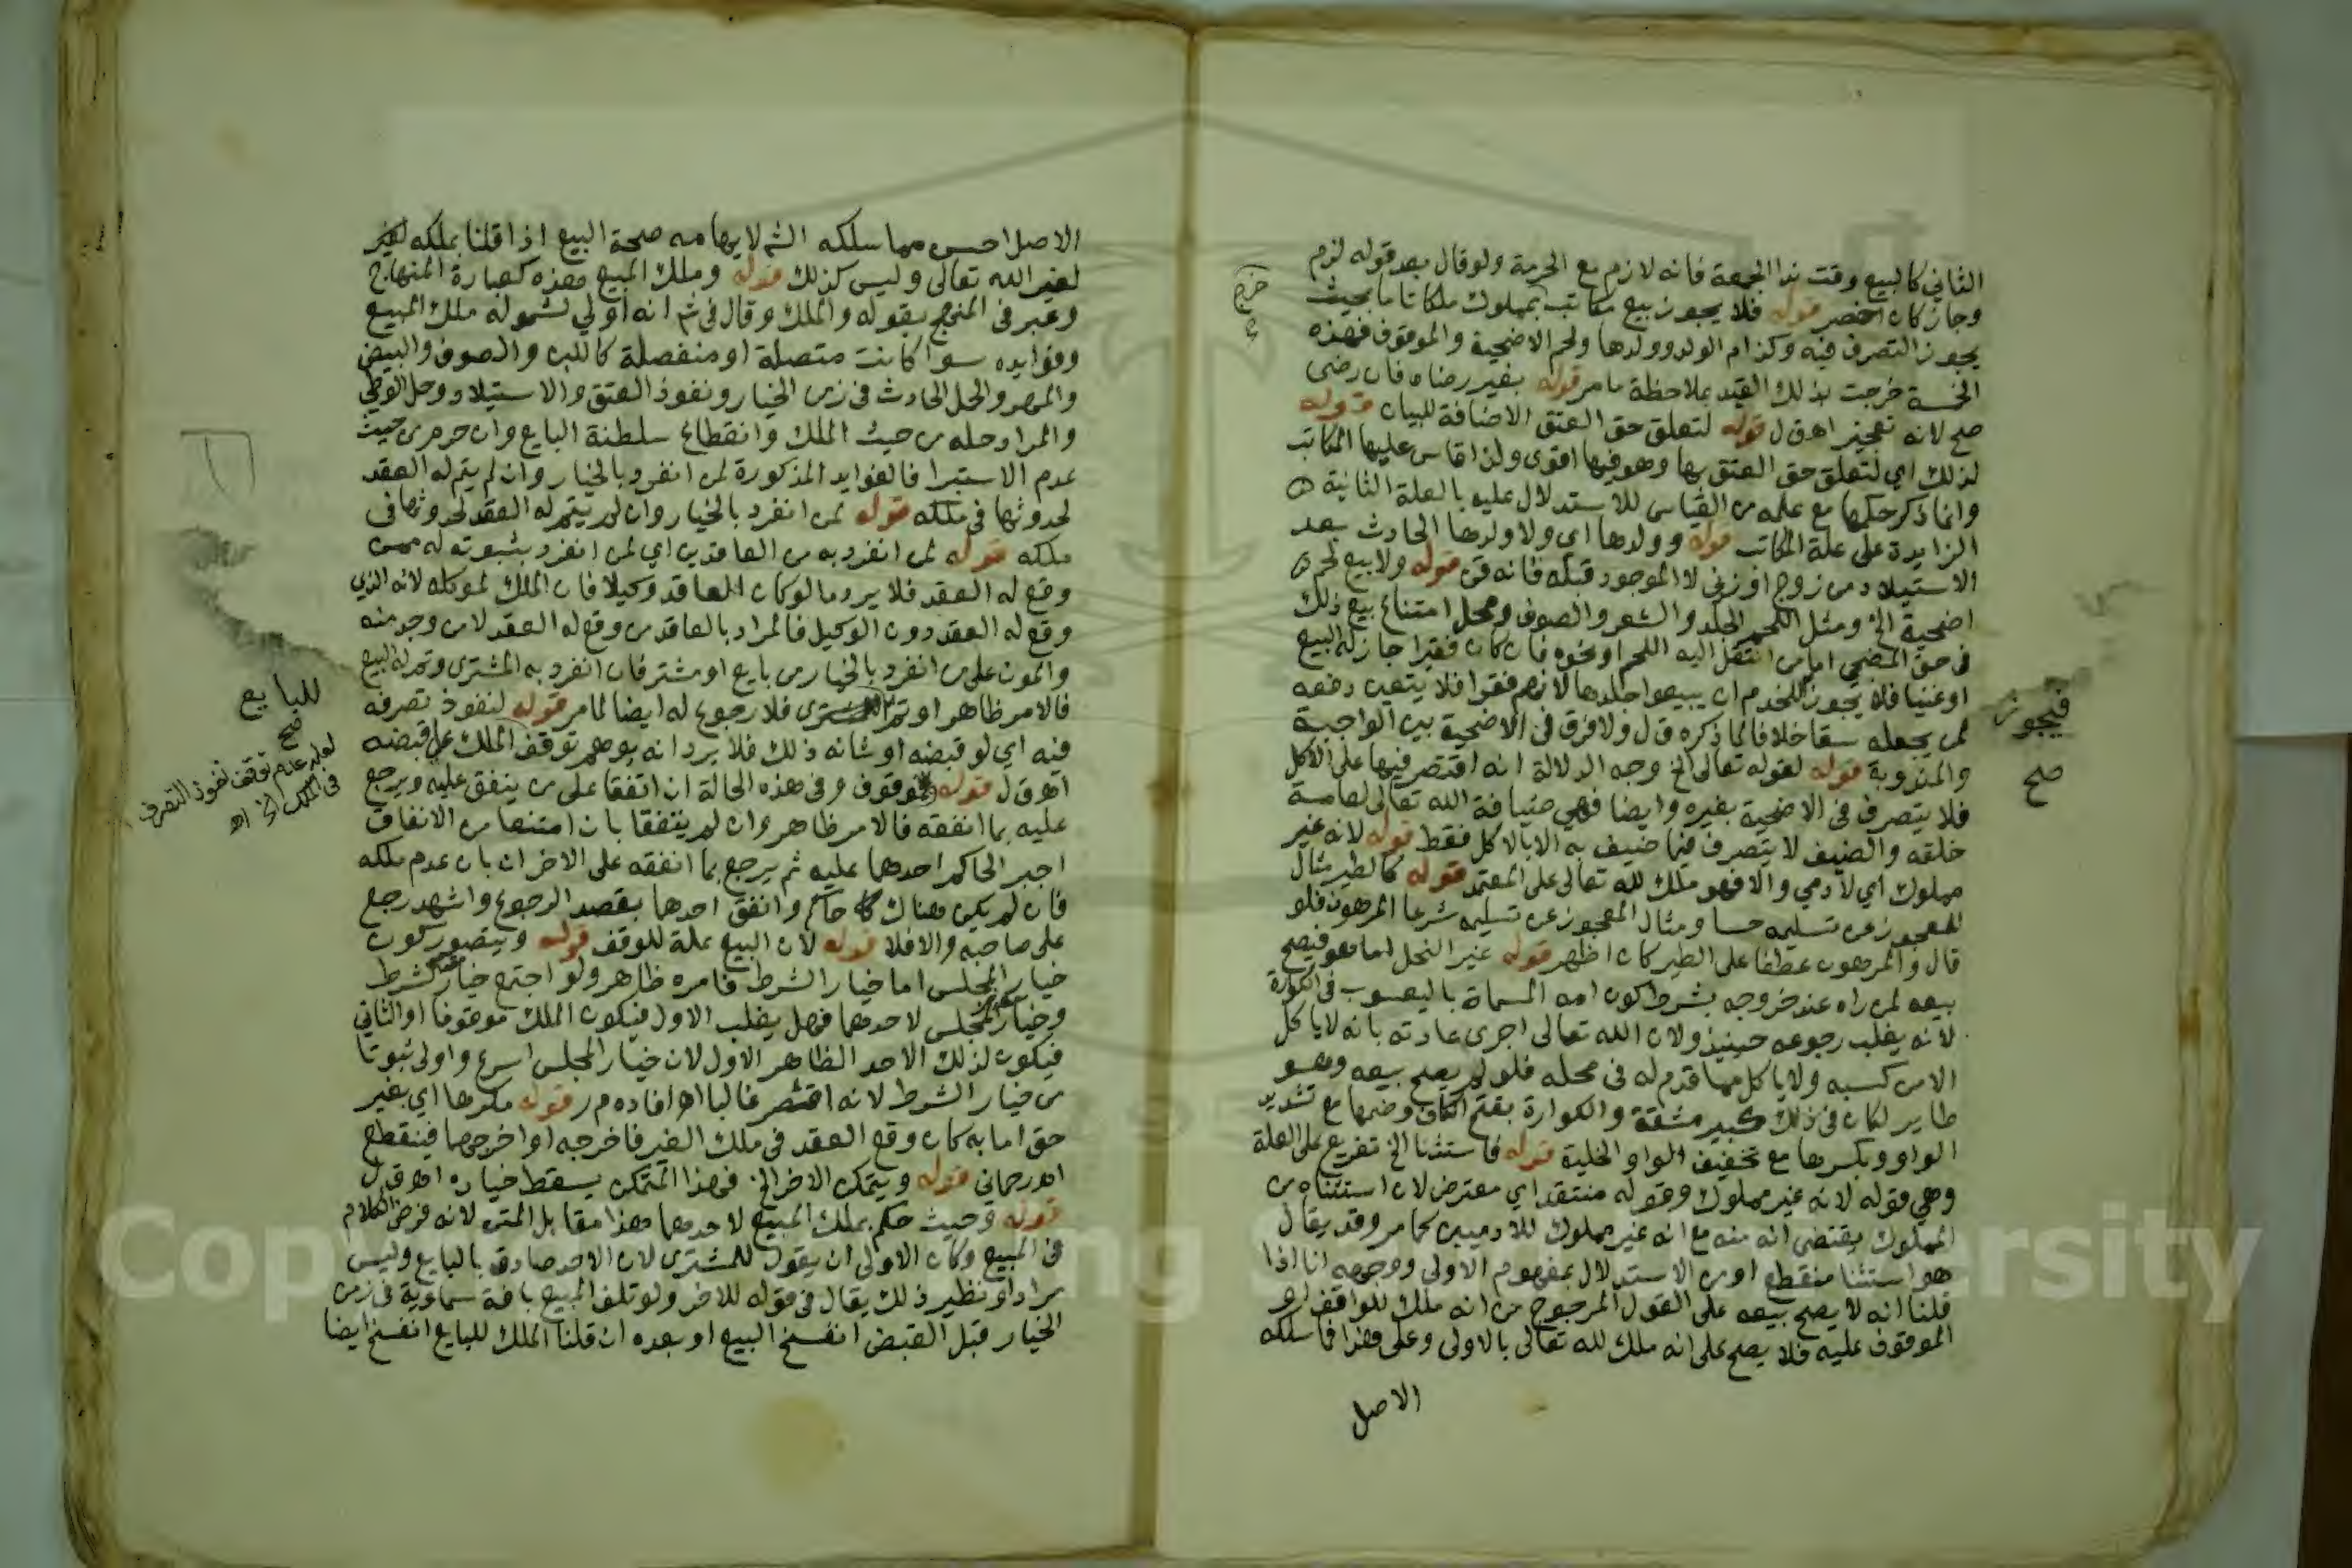 الثاني كالبيع وقت ندا الجمعة فانه لازم مع الحرمة ولو قال بعد قوله لزم
وجاز كان اخصر قوله فلا يجوز بيع مكاتب بمملوك ملكا تاما بحيث
يجوز التصرف فيه وكذا ام الولد وولدها ولحم الاضحية والموقوف فهذه
الخمسة خرجت بذلك القيد بملاحظة ما مر قوله بغير رضاه فان رضى
صح لانه تعجيز اهـ ق ل قوله لتعلق حق العتق الاضافة للبيان قوله
لذلك اي لتعلق حق العتق بها وهو فيها اقوى ولذا قاس عليها المكاتب
وانما ذكر حكمها مع علمه من القياس للاستدلال عليه بالعلة الثانية
الزايدة على علة المكاتب قوله وولدها اي ولا ولدها الحادث بعد
الاستيلاد من زوج او زنى لا الموجود قبله فانه قن قوله ولا بيع لحم
اضحية الخ ومثل اللحم الجلد والشعر والصوف ومحل امتناع بيع ذلك
في حق المضحي اما من انتقل اليه اللحم او نحوه فان كان فقيرا جاز له البيع
او غنيا فلا يجوز للخدم ان يبيعوا جلدها لانهم فقرا فلا يتعين دفعه
لمن يجعله سقا خلافا لما ذكره ق ل ولا فرق في الاضحية بين الواجبة
والمندوبة قوله لقوله تعالى الخ وجه الدلالة انه اقتصر فيها على الاكل
فلا يتصرف في الاضحية بغيره وايضا فهي ضيافة الله تعالى لعامة
خلقه والضيف لا يتصرف فيما ضيف به الا بالاكل فقط قوله لانه غير
مملوك اي لآدمي والا فهو ملك لله تعالى على المعتمد قوله كالطير مثال
للمعجوز عن تسليمه حسا ومثال المعجوز عن تسليمه شرعا المرهون فلو
قال والمرهون عطفا على الطير كان اظهر قوله غير النحل اما هو فيصح
بيعه لمن راه عند خروجه بشرط كون امه المسماة باليعسوب في الكوارة
لانه يغلب رجوعه حينيذ ولان الله تعالى اجرى عادته بانه لا ياكل
الا من كسبه ولا ياكل مما قدم له في محله فلو لم يصح بيعه وهو
طاير لكان في ذلك كبير مشقة والكوارة بفتح الكاف وضمها مع تشديد
الواو وبكسرها مع تخفيف الواو الخلية قوله فاستثنا الخ تفريع على العلة
وهي قوله لانه غير مملوك وقوله منتقد اي معترض لان استثناه من
المملوك يقتضى انه منه مع انه غير مملوك للادميين كما مر وقد يقال
هو استثنا منقطع او من الاستدلال بمفهوم الاولى ووجهه انا اذا
قلنا انه لا يصح بيعه على القول المرجوح من انه ملك للواقف او
الموقوف عليه فلا يصح على انه ملك لله تعالى بالاولى وعلى هذا فما سلكه
الاصل
فيجوز
صح
الاصل احسن مما سلكه الش لايهامه صحة البيع اذا قلنا بملكه
لغير الله تعالى وليس كذلك قوله وملك المبيع هذه كعبارة المنهاج
وعبر في المنهج بقوله والملك وقال في ش انه اولي لشموله ملك المبيع
وفوايده سوا كانت متصلة او منفصلة كاللبن والصوف والبيض
والمهر والحمل الحادث في زمن الخيار ونفوذ العتق والاستيلاد وحل الوطي
والمراد حله من حيث الملك وانقطاع سلطنة البايع وان حرم من حيث
عدم الاستبرا فالفوايد المذكورة لمن انفرد بالخيار وان لم يتم له العقد
لحدوثها في ملكه قوله لمن انفرد بالخيار وان لم يتم له العقد لحدوثها في
ملكه قوله لمن انفرد به من العاقدين اي لمن انفرد بثبوته له ممن
وقع له العقد فلا يرد ما لو كان العاقد وكيلا فان الملك لموكله لانه الذي
وقع له العقد دون الوكيل فالمراد بالعاقد من وقع له العقد لا من وجد منه
والمون على من انفرد بالخيار من بايع او مشتر فان انفرد به المشترى وتم له البيع
فالامر ظاهر او تم فلا رجوع له ايضا لما مر قوله لنفوذ تصرفه
فيه اي لو قبضه او شانه ذلك فلا يرد انه يوهم توقف الملك على قبضه
اهـ ق ل قوله موقوف وفي هذه الحالة ان اتفقا على من ينفق عليه ويرجع
عليه بما انفقه فالامر ظاهر وان لم يتفقا بان امتنعا من الانفاق
اجبر الحاكم احدهما عليه ثم يرجع بما انفقه على الاخر ان بان عدم ملكه
فان لم يكن هناك حاكم وانفق احدهما بقصد الرجوع واشهد رجع
على صاحبه والا فلا قوله لان البيع علة للوقف قوله ويتصور كون
خيار المجلس اما خيار الشرط فامره ظاهر ولو اجتمع خيار الشرط
وخيار المجلس لاحدهما فهل يغلب الاول فيكون الملك موقوفا او الثاني
فيكون لذلك الاحد الظاهر الاول لان خيار المجلس اسرع واولى ثبوتا
من خيار الشرط لانه اقصر غالبا اهـ افاده م ر قوله مكرها اي بغير
حق اما به كان وقع العقد في ملك الغير فاخرجه او اخرجهما فينقطع
اهـ رحماني قوله ويتمكن الاخر الخ فهذا المتمكن يسقط خياره اهـ ق ل
قوله وحيث حكم بملك المبيع لاحدهما هذا مقابل المتن لانه فرض الكلام
في المبيع وكان الاولى ان يقول للمشترى لان الاحد صادق بالبايع وليس
مرادا ونظير ذلك يقال في قوله للاخر ولو تلف المبيع بافة سماوية في زمن
الخيار قبل القبض انفسخ البيع او بعده ان قلنا الملك للبايع انفسخ ايضا
للبايع
صح
لعله عدم توقف نفوذ التصرف